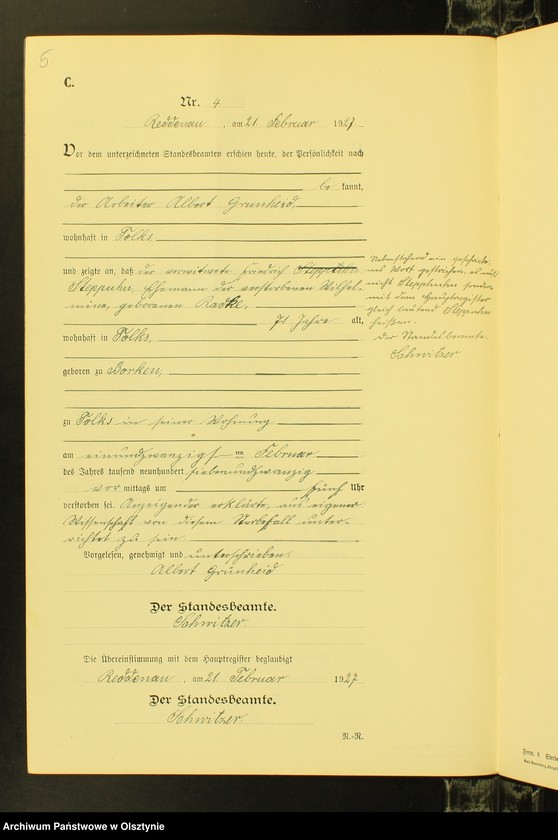 5
C.
Nr. 4
Reddenau, am 21. Februar 1927
Vor dem unterzeichneten Standesbeamten erschien heute, der Persönlichkeit nach
be kannt,
der Arbeiter Albert Grünheid
wohnhaft in Tolks
und zeigte an, daß der verwitwete Friedrich
Steppuhn, Ehemann der verstorbenen Wilhel-
mine, geborenen Radke,
71 Jahre alt,
wohnhaft in Tolks,
geboren zu Borken,
zu Tolks in seiner Wohnung
am einundzwanzigsten Februar
des Jahres tausend neunhundert siebenundzwanzig
vor mittags um fünf Uhr
verstorben sei. Anzeigender erklärte, aus eigener
Wissenschaft von diesem Sterbefall unter-
richtet zu sein
Vorgelesen, genehmigt und unterschrieben.
Albert Grünheid
Der Standesbeamte.
Schwitzer.
Die Übereinstimmung mit dem Hauptregister beglaubigt
Reddenau, am 21. Februar 1927
Der Standesbeamte.
Schwitzer.
R.-R.
Nebenstehend ein geschriebe-
nes Wort gestrichen, es muß
nicht sondern
mit dem Hauptregister
gleich lautend Steppuhn
heißen.
Der Standesbeamte.
Schwitzer.
Archiwum Państwowe w Olsztynie